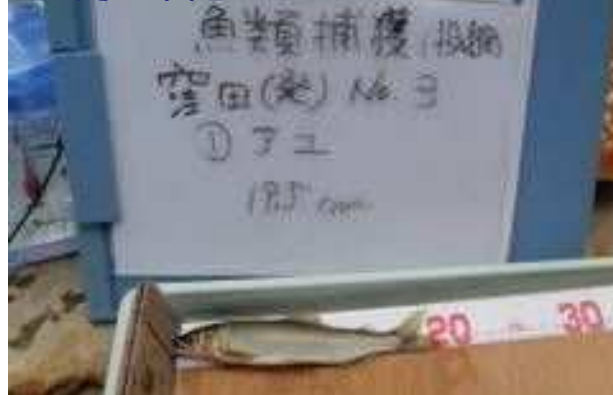 魚類捕獲(投網)
窪田(発) No. 9
①アユ
18.5 cm
20 30